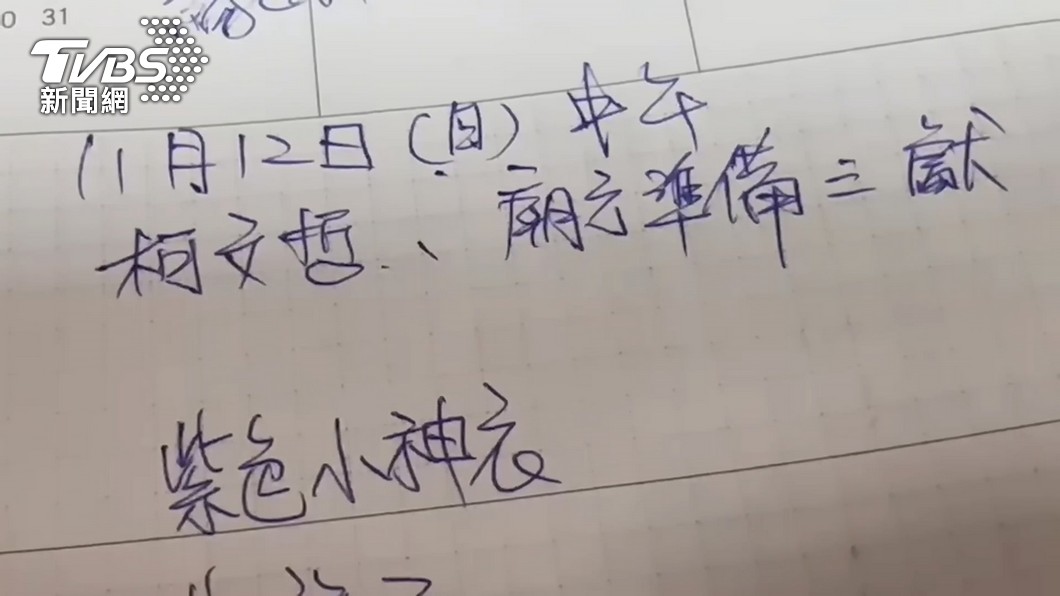 0 31
TVBS
新聞網
11月12日(日)中午
柯文哲、廟方準備三献
紫色小神衣